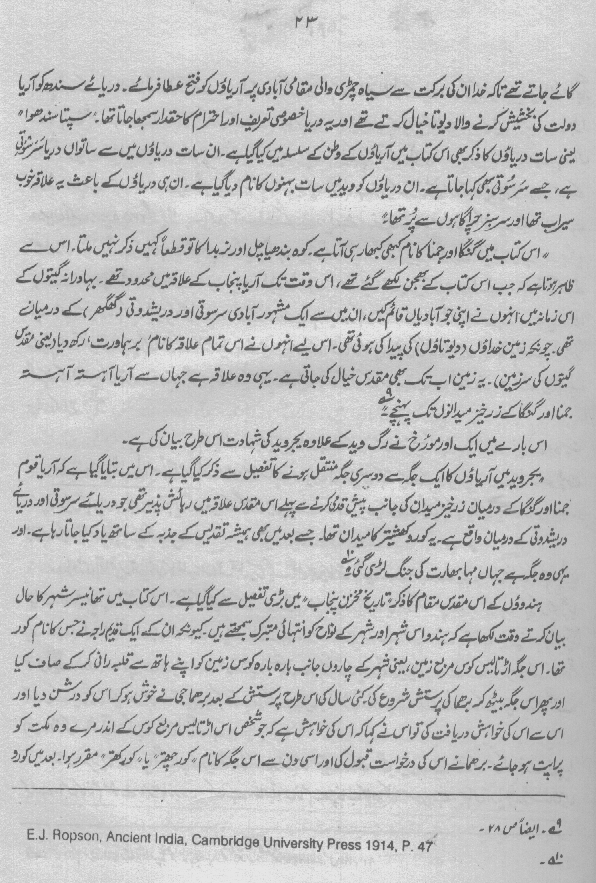 ۲۳
گائے جاتے تھے تاکہ خدا ان کی برکت سے سیاہ چمڑی والی مقامی آبادی پہ آریاؤں کو فتح عطا فرمائے۔ دریائے سندھ کو آریا
دولت کی بخشیش کرنے والا دیوتا خیال کرتے تھے اور یہ دریا خصوصی تعریف اور احترام کا حقدار سمجھا جاتا تھا۔ "سپتا سندھوا"
یعنی سات دریاؤں کا ذکر بھی اس کتاب میں آریاؤں کے وطن کے سلسلہ میں کیا گیا ہے۔ ان سات دریاؤں میں سے ساتواں دریا سرسوتی
ہے، جسے سرسوتی بھی کہا جاتا ہے۔ ان دریاؤں کو وید میں سات بہنوں کا نام دیا گیا ہے۔ ان ہی دریاؤں کے باعث یہ علاقہ خوب
سیراب تھا اور سرسبز چراگاہوں سے پُر تھا"
"اس کتاب میں گنگا اور جمنا کا نام کبھی کبھار ہی آتا ہے۔ کوہ بندھیاچل اور نربدا کا تو قطعاً کہیں ذکر نہیں ملتا۔ اس سے
ظاہر ہوتا ہے کہ جب اس کتاب کے بھجن لکھے گئے تھے، اس وقت تک آریا پنجاب کے علاقہ میں محدود تھے۔ بہادرانہ گیتوں کے
اس زمانہ میں انہوں نے اپنی جو آبادیاں قائم کیں، ان میں سے ایک مشہور آبادی سرسوتی اور دریشدوتی (گھگھر) کے درمیان
تھی۔ چونکہ زمین خداؤں (دیوتاؤں) کی پیدا کی ہوئی تھی۔ اس لیے انہوں نے اس تمام علاقہ کا نام "برہماورت" رکھ دیا (یعنی مقدس
گیتوں کی سرزمین)۔ یہ زمین اب تک بھی مقدس خیال کی جاتی ہے۔ یہی وہ علاقہ ہے جہاں سے آریا آہستہ آہستہ
جمنا اور گنگا کے زرخیز میدانوں تک پہنچے"۹
اس بارے میں ایک اور مورخ نے رگ وید کے علاوہ یجروید کی شہادت اس طرح بیان کی ہے۔
"یجروید میں آریاؤں کا ایک جگہ سے دوسری جگہ منتقل ہونے کا تفصیل سے ذکر کیا گیا ہے۔ اس میں بتایا گیا ہے کہ آریا قوم
جمنا اور گنگا کے درمیان زرخیز میدان کی جانب پیش قدمی کرنے سے پہلے اس مقدس علاقہ میں رہائش پذیر تھی جو دریائے سرسوتی اور دریائے
دریشدوتی کے درمیان واقع ہے۔ یہ کوروکھشیتر کا میدان تھا۔ جسے بعد میں بھی ہمیشہ تقدیس کے جذبہ کے ساتھ یاد کیا جاتا رہا ہے۔ اور
یہی وہ جگہ ہے جہاں مہا بھارت کی جنگ لڑی گئی"۱۰
ہندوؤں کے اس مقدس مقام کا ذکر "تاریخ مخزن پنجاب" میں بڑی تفصیل سے کیا گیا ہے۔ اس کتاب میں تھانیسر شہر کا حال
بیان کرتے وقت لکھا ہے کہ ہندو اس شہر اور شہر کے نواح کو انتہائی متبرک سمجھتے ہیں۔ کیونکہ ان کے ایک قدیم راجہ نے جس کا نام کور
تھا۔ اس جگہ اڑتالیس کوس مربع زمین، یعنی شہر کے چاروں جانب بارہ بارہ کوس زمین کو اپنے ہاتھ سے قلبہ رانی کر کے صاف کیا
اور پھر اس جگہ بیٹھ کر برھما کی پرستش شروع کی کئی سال کی اس طرح پرستش کے بعد برھما جی نے خوش ہو کر اس کو درشن دیا اور
اس سے اس کی خواہش دریافت کی تو اس نے کہا کہ اس کی خواہش ہے کہ جو شخص اس اڑتالیس مربع کوس کے اندر مرے وہ مکت کو
پراپت ہو جائے۔ برھما نے اس کی درخواست قبول کی اور اسی دن سے اس جگہ کا نام "کورچھتر" یا "کورکھتر" مقرر ہوا۔ بعد میں کورو
۹۔ ایضاً ص ۲۸۔
۱۰۔ E.J. Ropson, Ancient India, Cambridge University Press 1914, P. 47